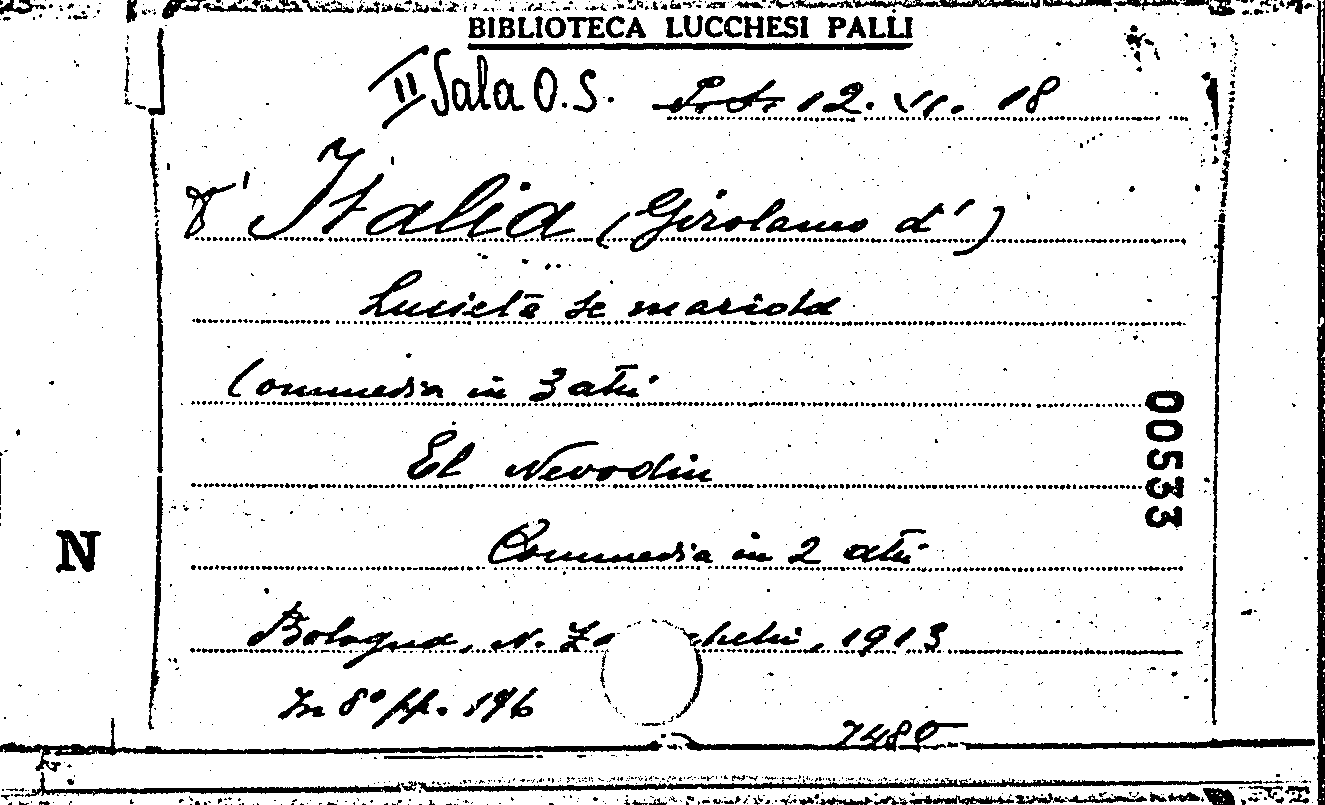 BIBLIOTECA LUCCHESI PALLI
II Sala O.S. 12. VI. 18
d' Italia (Girolamo d')
Lucieta se marida
Commedia in 3 atti
El Nevodin
Commedia in 2 atti
Bologna, N. Za chelli, 1913
In 8° pp. 176
7485
00533
N